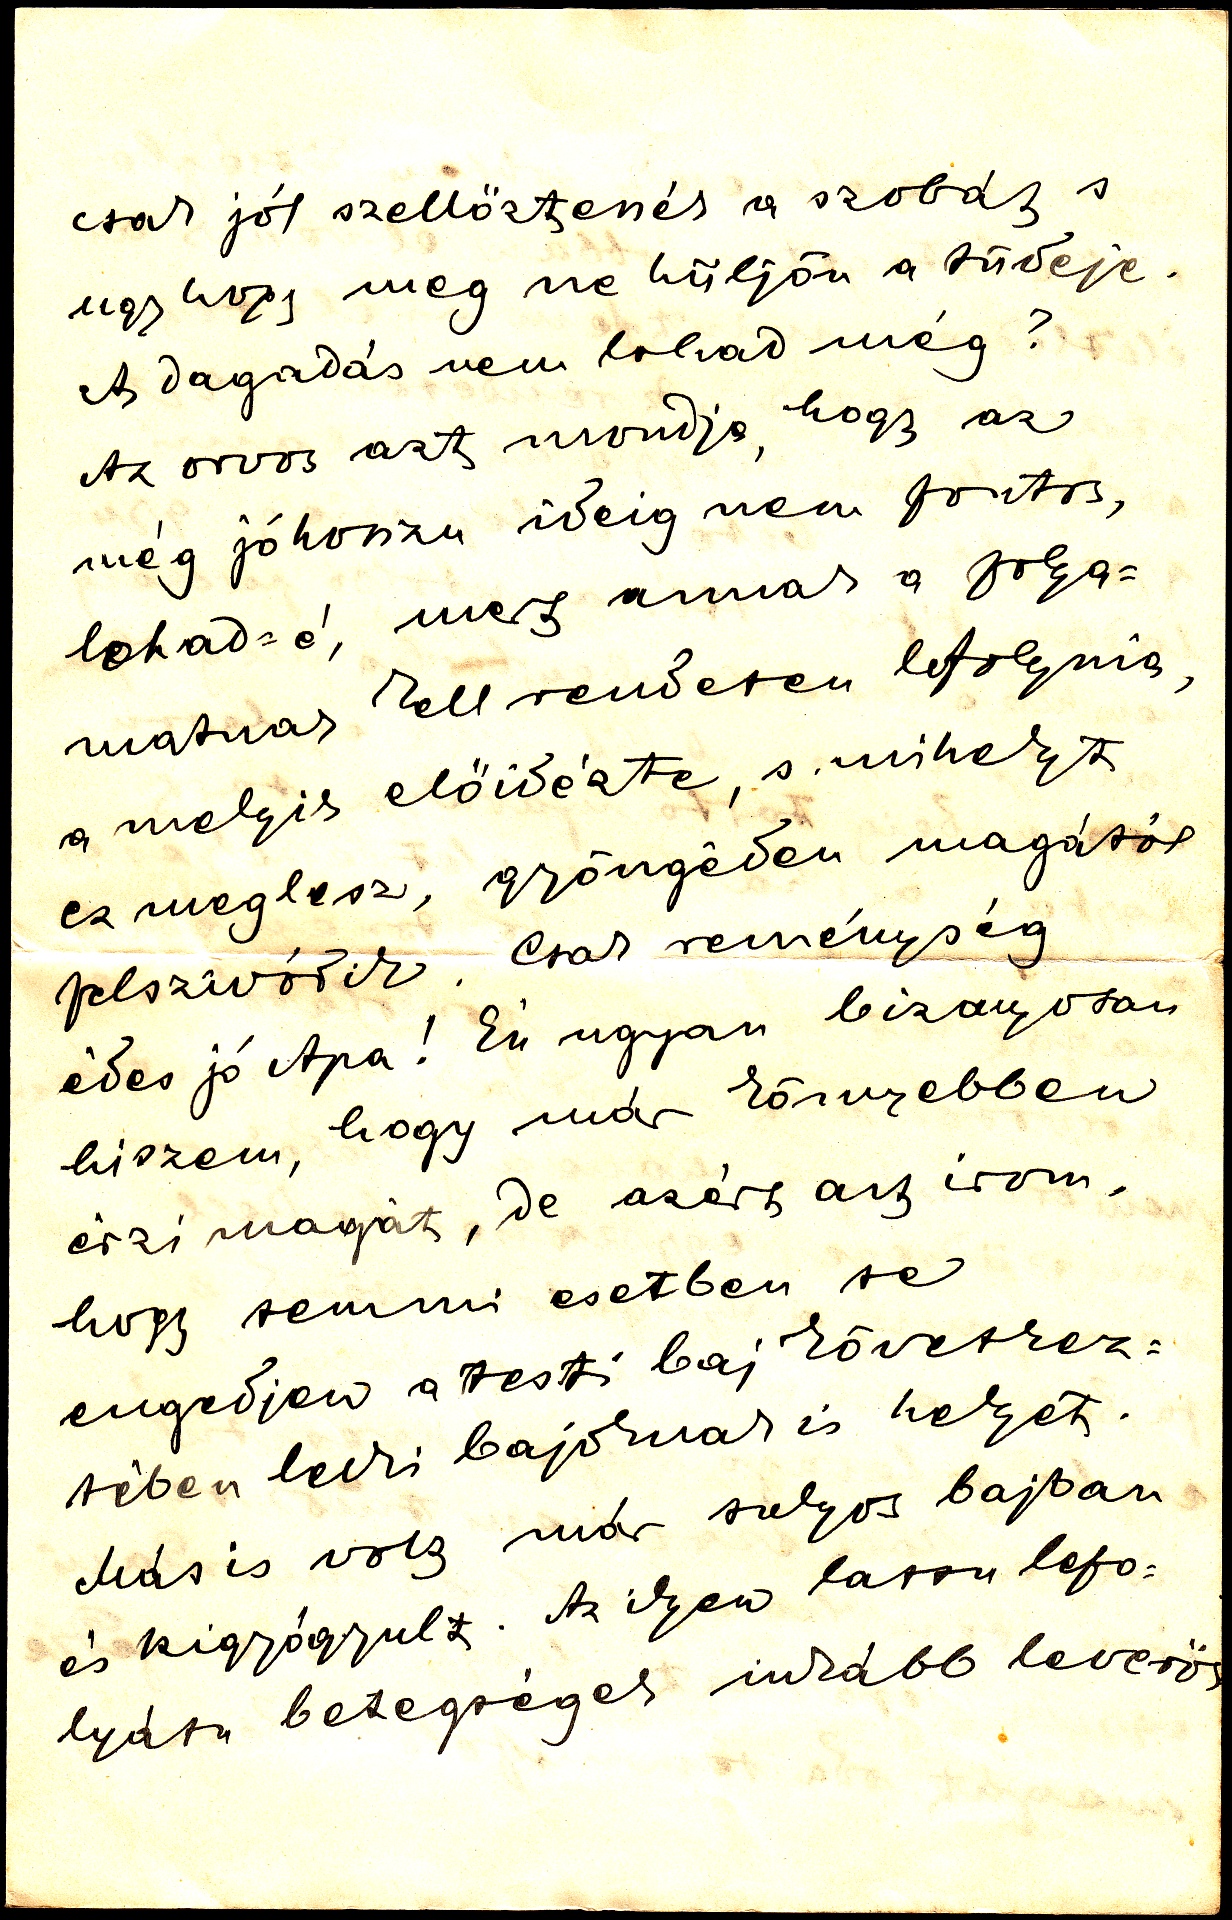 csak jól szellöztessék a szobát, s
ugy hogy meg ne hüljön a tüdeje.
A dagadás nem lohad még?
Az orvos azt mondja, hogy az
még jó hosszu ideig nem fontos,
lohad-é, mert annak a folya=
matnak kell rendesen lefolynia,
a melyik előidézte, s mihelyt
ez meglesz, gyöngéden magától
felszívódik. Csak reménység
édes jó Apa! Én ugyan bizonyosan
hiszem, hogy már könnyebben
érzi magát, de azért azt irom,
hogy semmi esetben se
engedjen a testi baj következ=
tében lelki bajoknak is helyet.
Más is volt már sulyos bajban
és kigyógyult. Az ilyen lassu lefo=
lyásu betegségek inkább leverők